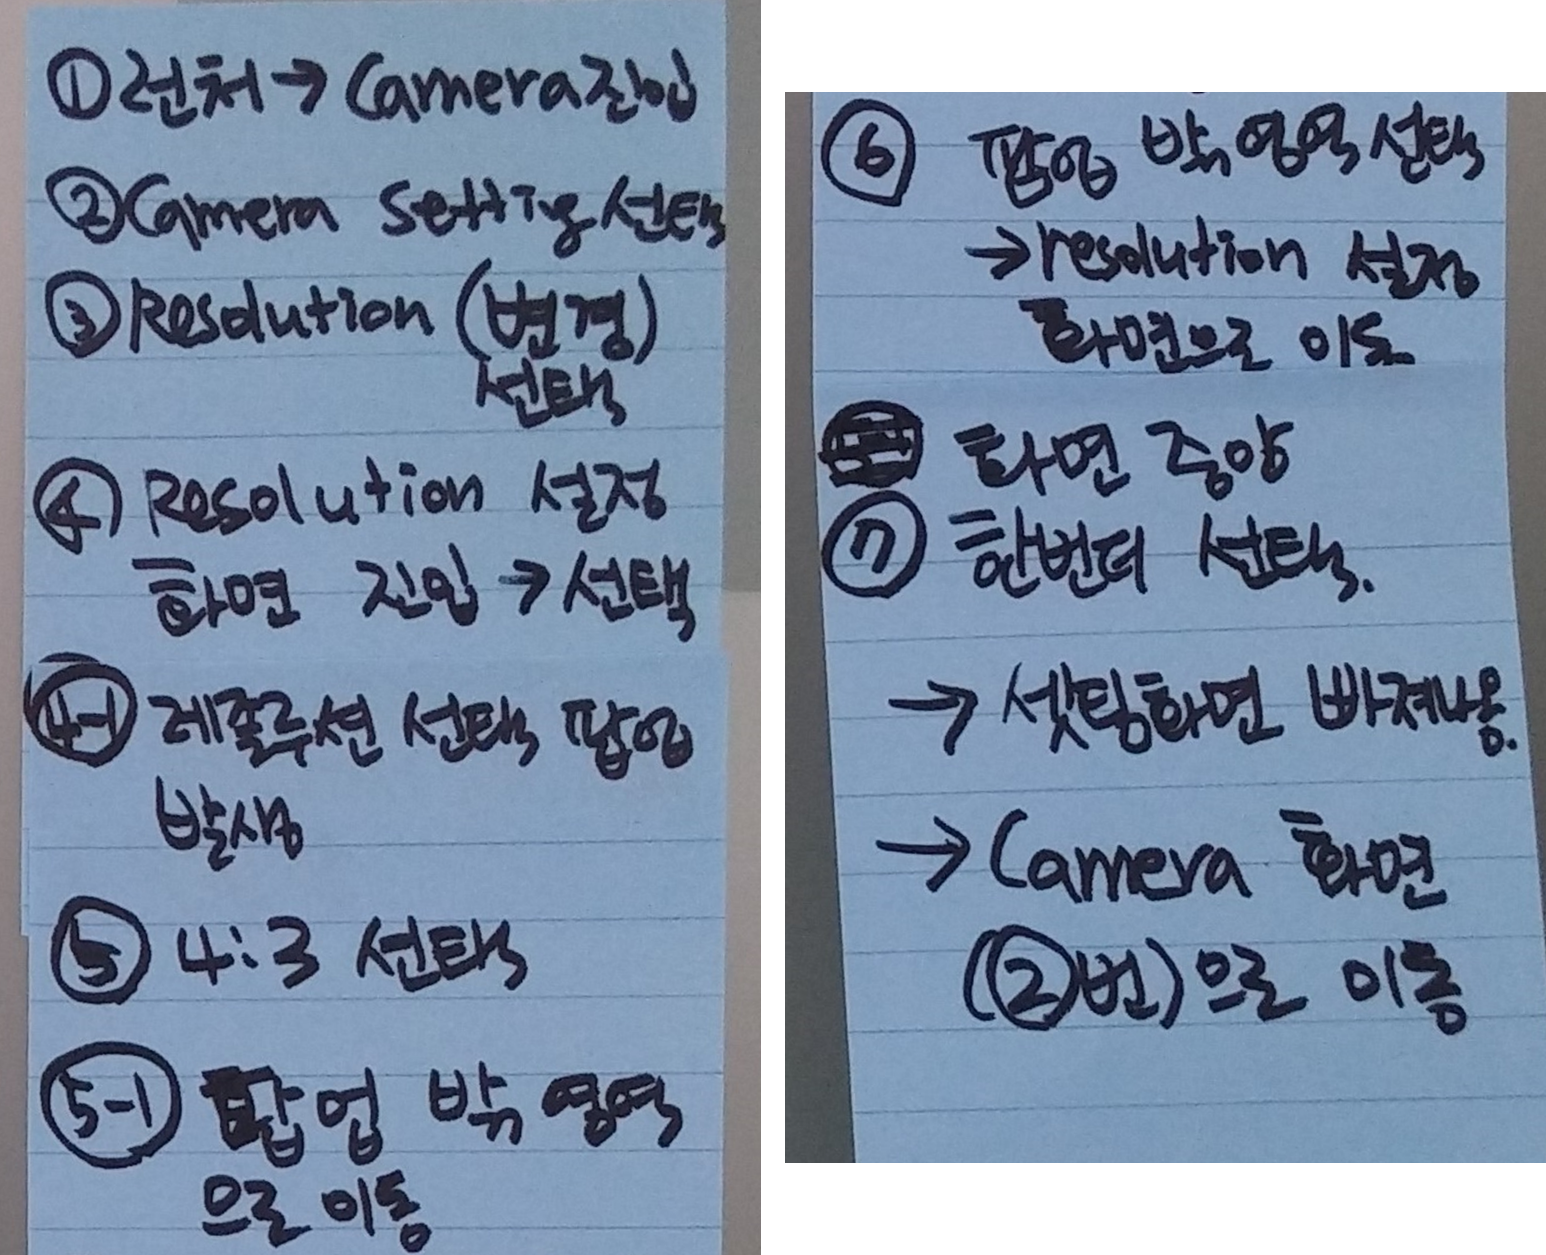 ① 런처 → Camera 진입
② Camera Setting 선택
③ Resolution (변경)
선택
④ Resolution 설정
화면 진입 → 선택
4-1 레졸루션 선택 팝업
발생
⑤ 4:3 선택
5-1 팝업 밖 영역
으로 이동
⑥ 팝업 밖 영역 선택
→ resolution 설정
화면으로 이동
화면 중앙
⑦ 한번더 선택.
→ 셋팅화면 빠져나옹.
→ Camera 화면
(②번)으로 이동